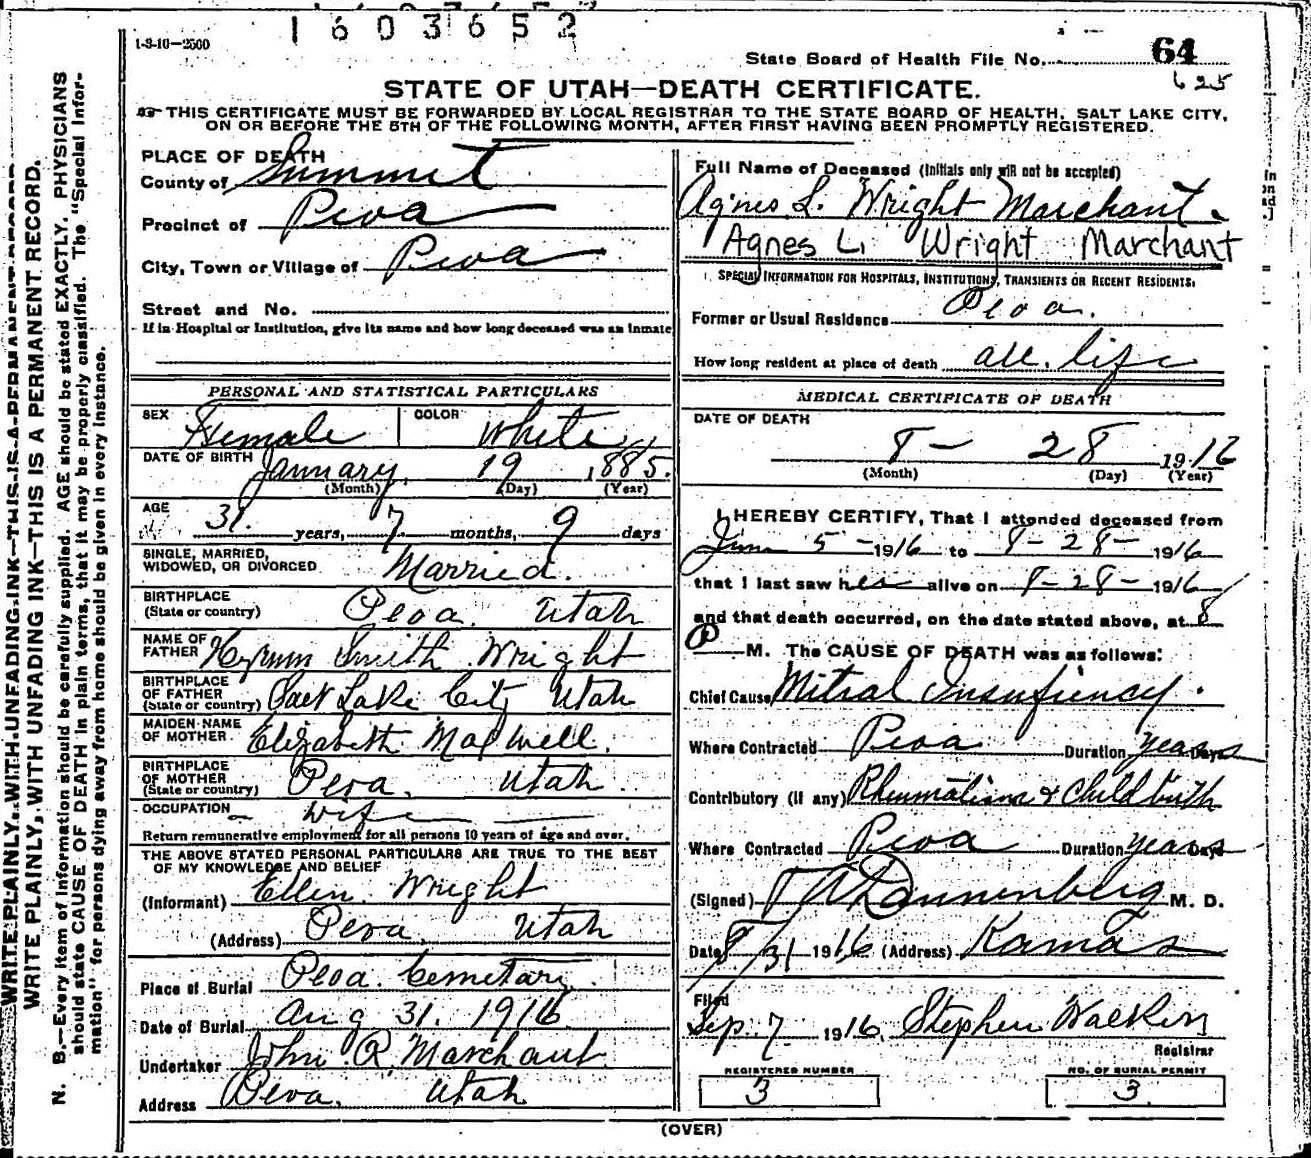 1603652
1-3-10—2500
State Board of Health File No. 64
625
STATE OF UTAH—DEATH CERTIFICATE.
THIS CERTIFICATE MUST BE FORWARDED BY LOCAL REGISTRAR TO THE STATE BOARD OF HEALTH, SALT LAKE CITY,
ON OR BEFORE THE 5TH OF THE FOLLOWING MONTH, AFTER FIRST HAVING BEEN PROMPTLY REGISTERED.
PLACE OF DEATH
County of Summit
Precinct of Peoa
City, Town or Village of Peoa
Street and No.
If in Hospital or Institution, give its name and how long deceased was an inmate
PERSONAL AND STATISTICAL PARTICULARS
SEX Female COLOR White
DATE OF BIRTH January 19 1885.
(Month) (Day) (Year)
AGE
31 years, 7 months, 9 days
SINGLE, MARRIED,
WIDOWED, OR DIVORCED Married.
BIRTHPLACE
(State or country) Peoa Utah
NAME OF
FATHER Hyrum Smith Wright
BIRTHPLACE
OF FATHER
(State or country) Salt Lake City Utah
MAIDEN NAME
OF MOTHER Elizabeth Maxwell.
BIRTHPLACE
OF MOTHER
(State or country) Peoa, Utah
OCCUPATION Wife
Return remunerative employment for all persons 10 years of age and over.
THE ABOVE STATED PERSONAL PARTICULARS ARE TRUE TO THE BEST
OF MY KNOWLEDGE AND BELIEF
(Informant) Ellen Wright
(Address) Peoa, Utah
Place of Burial Peoa Cemetary
Date of Burial Aug 31. 1916
Undertaker John R. Marchant
Address Peoa, Utah
Full Name of Deceased (Initials only will not be accepted)
Agnes L. Wright Marchant.
Agnes L. Wright Marchant
SPECIAL INFORMATION FOR HOSPITALS, INSTITUTIONS, TRANSIENTS OR RECENT RESIDENTS.
Former or Usual Residence Peoa.
How long resident at place of death all life
MEDICAL CERTIFICATE OF DEATH
DATE OF DEATH
8— 28 1916
(Month) (Day) (Year)
I HEREBY CERTIFY, That I attended deceased from
June 5—1916 to 8-28-1916
that I last saw her alive on 8-28-1916
and that death occurred, on the date stated above, at 8
P M. The CAUSE OF DEATH was as follows:
Chief Cause Mitral Insufiency.
Where Contracted Peoa Duration years Days
Contributory (if any) Rheumatism & Childbirth
Where Contracted Peoa Duration years Days
(Signed) Dannenberg M. D.
Date 8/31 1916 (Address) Kamas
Filed
Sep. 7 1916, Stephen Walker
Registrar
REGISTERED NUMBER
3
NO. OF BURIAL PERMIT
3
(OVER)
WRITE PLAINLY, WITH UNFADING INK—THIS IS A PERMANENT RECORD
WRITE PLAINLY, WITH UNFADING INK—THIS IS A PERMANENT RECORD.
N. B.—Every item of information should be carefully supplied. AGE should be stated EXACTLY. PHYSICIANS
should state CAUSE OF DEATH in plain terms, that it may be properly classified. The "Special Infor-
mation" for persons dying away from home should be given in every instance.